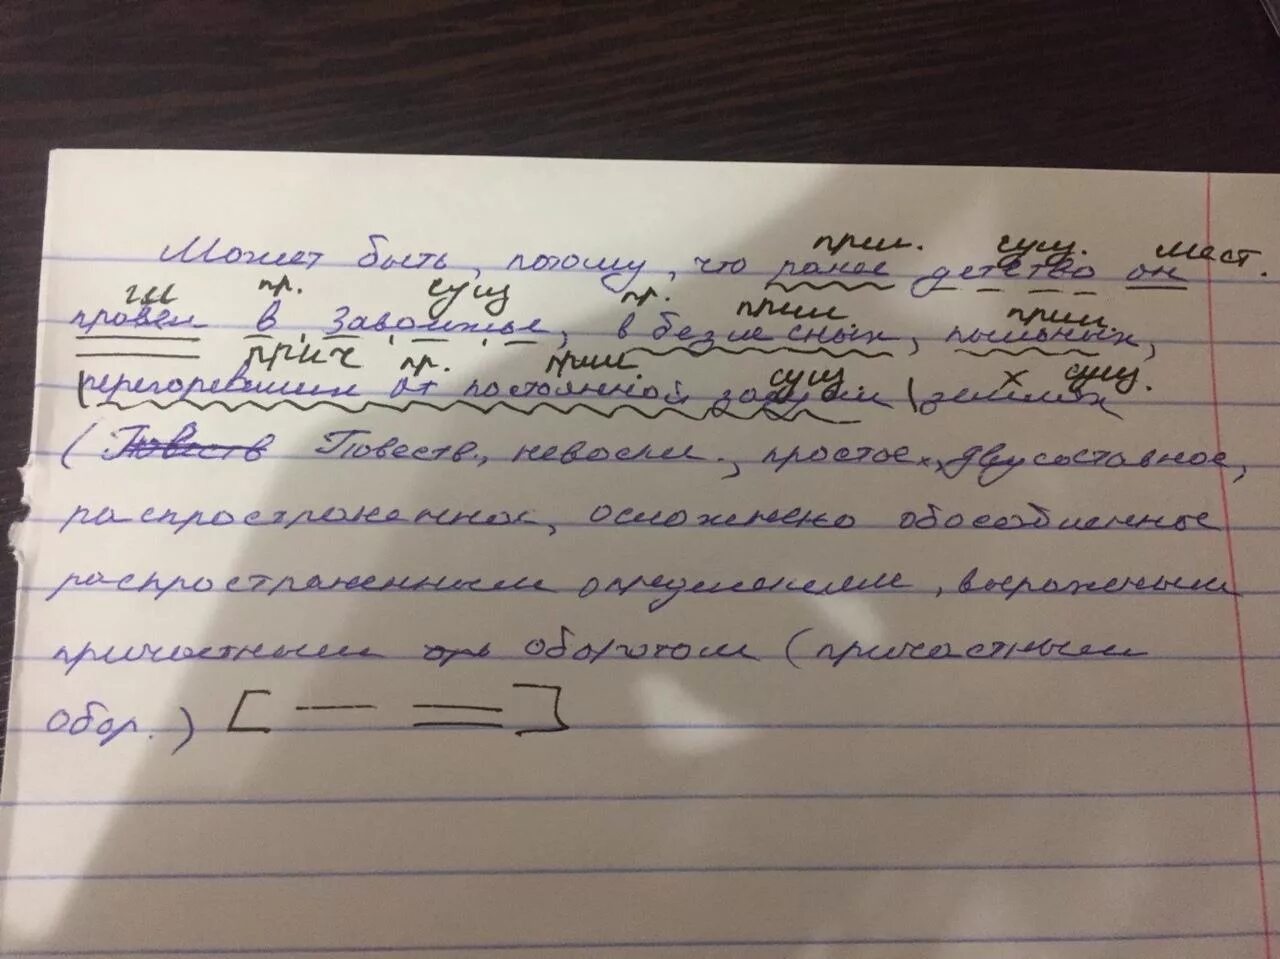 прил. сущ. мест.
Может быть, потому, что ранее детство он
гл пр. сущ пр. прил. прил.
провел в Заволжье, в безлесных, пыльных,
прич пр. прил. сущ х сущ.
перегоревших от постоянной засухи землях
(Повеств Повеств., невоскл., простое, двусоставное,
распространенное, осложнено обособленное
распространенным определением, выраженым
причастным оборотом (причастным
обор.)